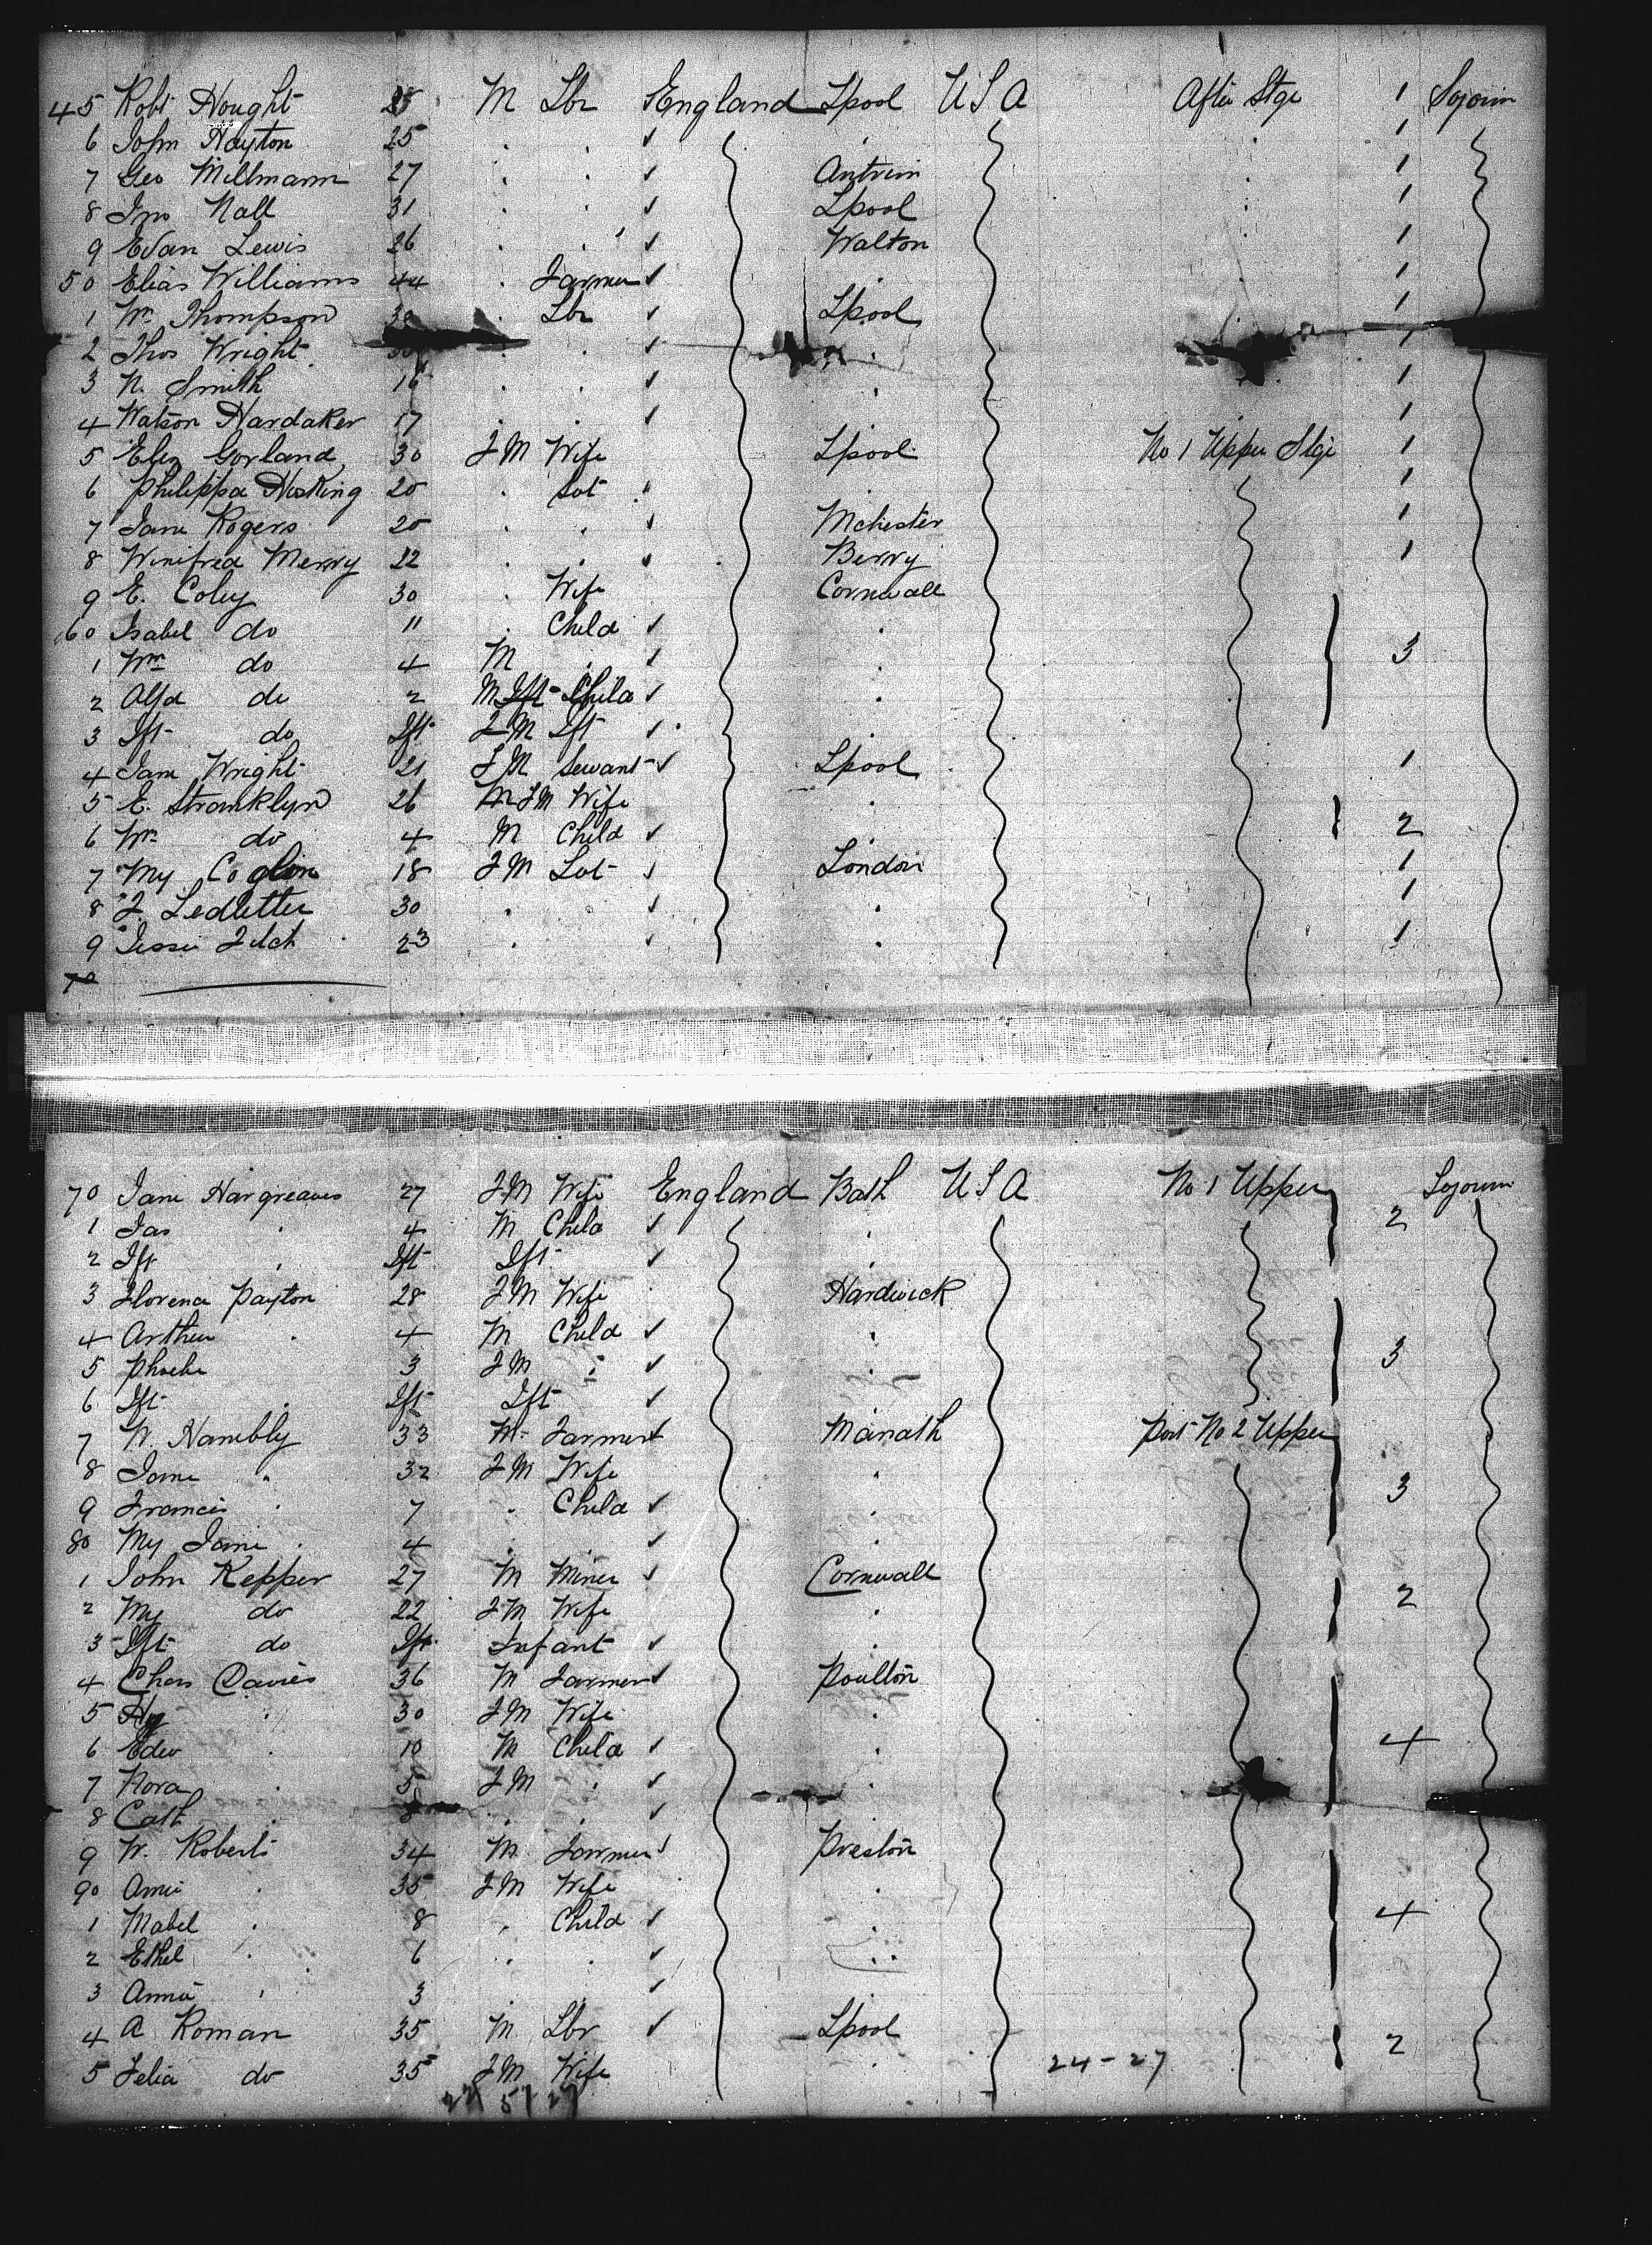 45 Robt Hought 25 M Lbr England Lpool USA After Stge 1 Sojourn
6 John Hayton 25 . . ✓ . . 1
7 Geo Millmann 27 . . ✓ Antrim . 1
8 Jno Nall 31 . . ✓ Lpool . 1
9 Evan Lewis 26 . . ✓ Walton . 1
50 Elias Williams 44 . Farmer ✓ . . 1
1 Wm Thompson 30 . Lbr ✓ Lpool 1
2 Thos Wright . . ✓ . 1
3 N. Smith 16 . . ✓ . . 1
4 Watson Hardaker 17 . . ✓ . 1
5 Eliz Gorland 30 FM Wife Lpool No 1 Upper Stge 1
6 Philippa Hosking 20 . Svt . . 1
7 Jane Rogers 20 . . ✓ Mchester 1
8 Winifred Merry 22 . . ✓ Berry 1
9 E. Coley 30 . Wife Cornwall
60 Isabel do 11 . Child ✓ .
1 Wm do 4 M . ✓ . 3
2 Alfd do 2 M Ift Child ✓ .
3 Ift do Ift FM Ift ✓ .
4 Jane Wright 21 FM Servant ✓ Lpool 1
5 E. Stranklyn 26 M FM Wife .
6 Wm do 4 M Child ✓ . 2
7 My Coglon 18 FM Svt ✓ London 1
8 F. Ledletter 30 . . ✓ . 1
9 Jessie Filch 23 . . ✓ . 1
70
70 Jane Hargreaves 27 FM Wife England Bath USA No 1 Upper Sojourn
1 Jas . 4 M Child ✓ . 2
2 Ift . Ift Ift ✓ .
3 Florence Payton 28 FM Wife Hardwick
4 Arthur . 4 M Child ✓ .
5 Phoebe 3 FM . ✓ . 3
6 Ift . Ift Ift ✓
7 W. Hambly 33 M Farmer ✓ Manath Port No 2 Upper
8 Jane " 32 FM Wife .
9 Francis . 7 . Child ✓ . 3
80 My Jane . 4 . . ✓ .
1 John Kepper 27 M Miner ✓ Cornwall
2 My do 22 FM Wife . 2
3 Ift do Ift Infant ✓ .
4 Chas Davies 36 M Farmer ✓ Poulton
5 Hy . 30 FM Wife .
6 Edw . 10 M Child ✓ . 4
7 Nora . 5 FM . ✓ .
8 Cath . . . ✓
9 W. Roberts 34 M Farmer ✓ Preston
90 Amie . 35 FM Wife .
1 Mabel . 8 . Child ✓ . 4
2 Ethel . 6 . . ✓ .
3 Annie . 3 . . ✓
4 A Roman 35 M Lbr ✓ Lpool 2
5 Felia do 35 FM Wife . 24-27
27/5/27